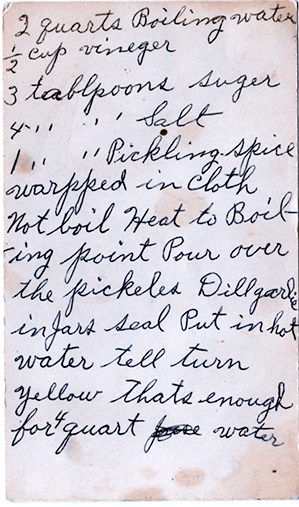 2 quarts Boiling water
1/2 cup vineger
3 tablpoons suger
4 " " Salt
1 " " Pickling spice
warpped in cloth
Not boil Heat to Boil-
ing point Pour over
the pickeles Dill garlic
in Jars seal Put in hot
water tell turn
yellow Thats enough
for 4 quart water